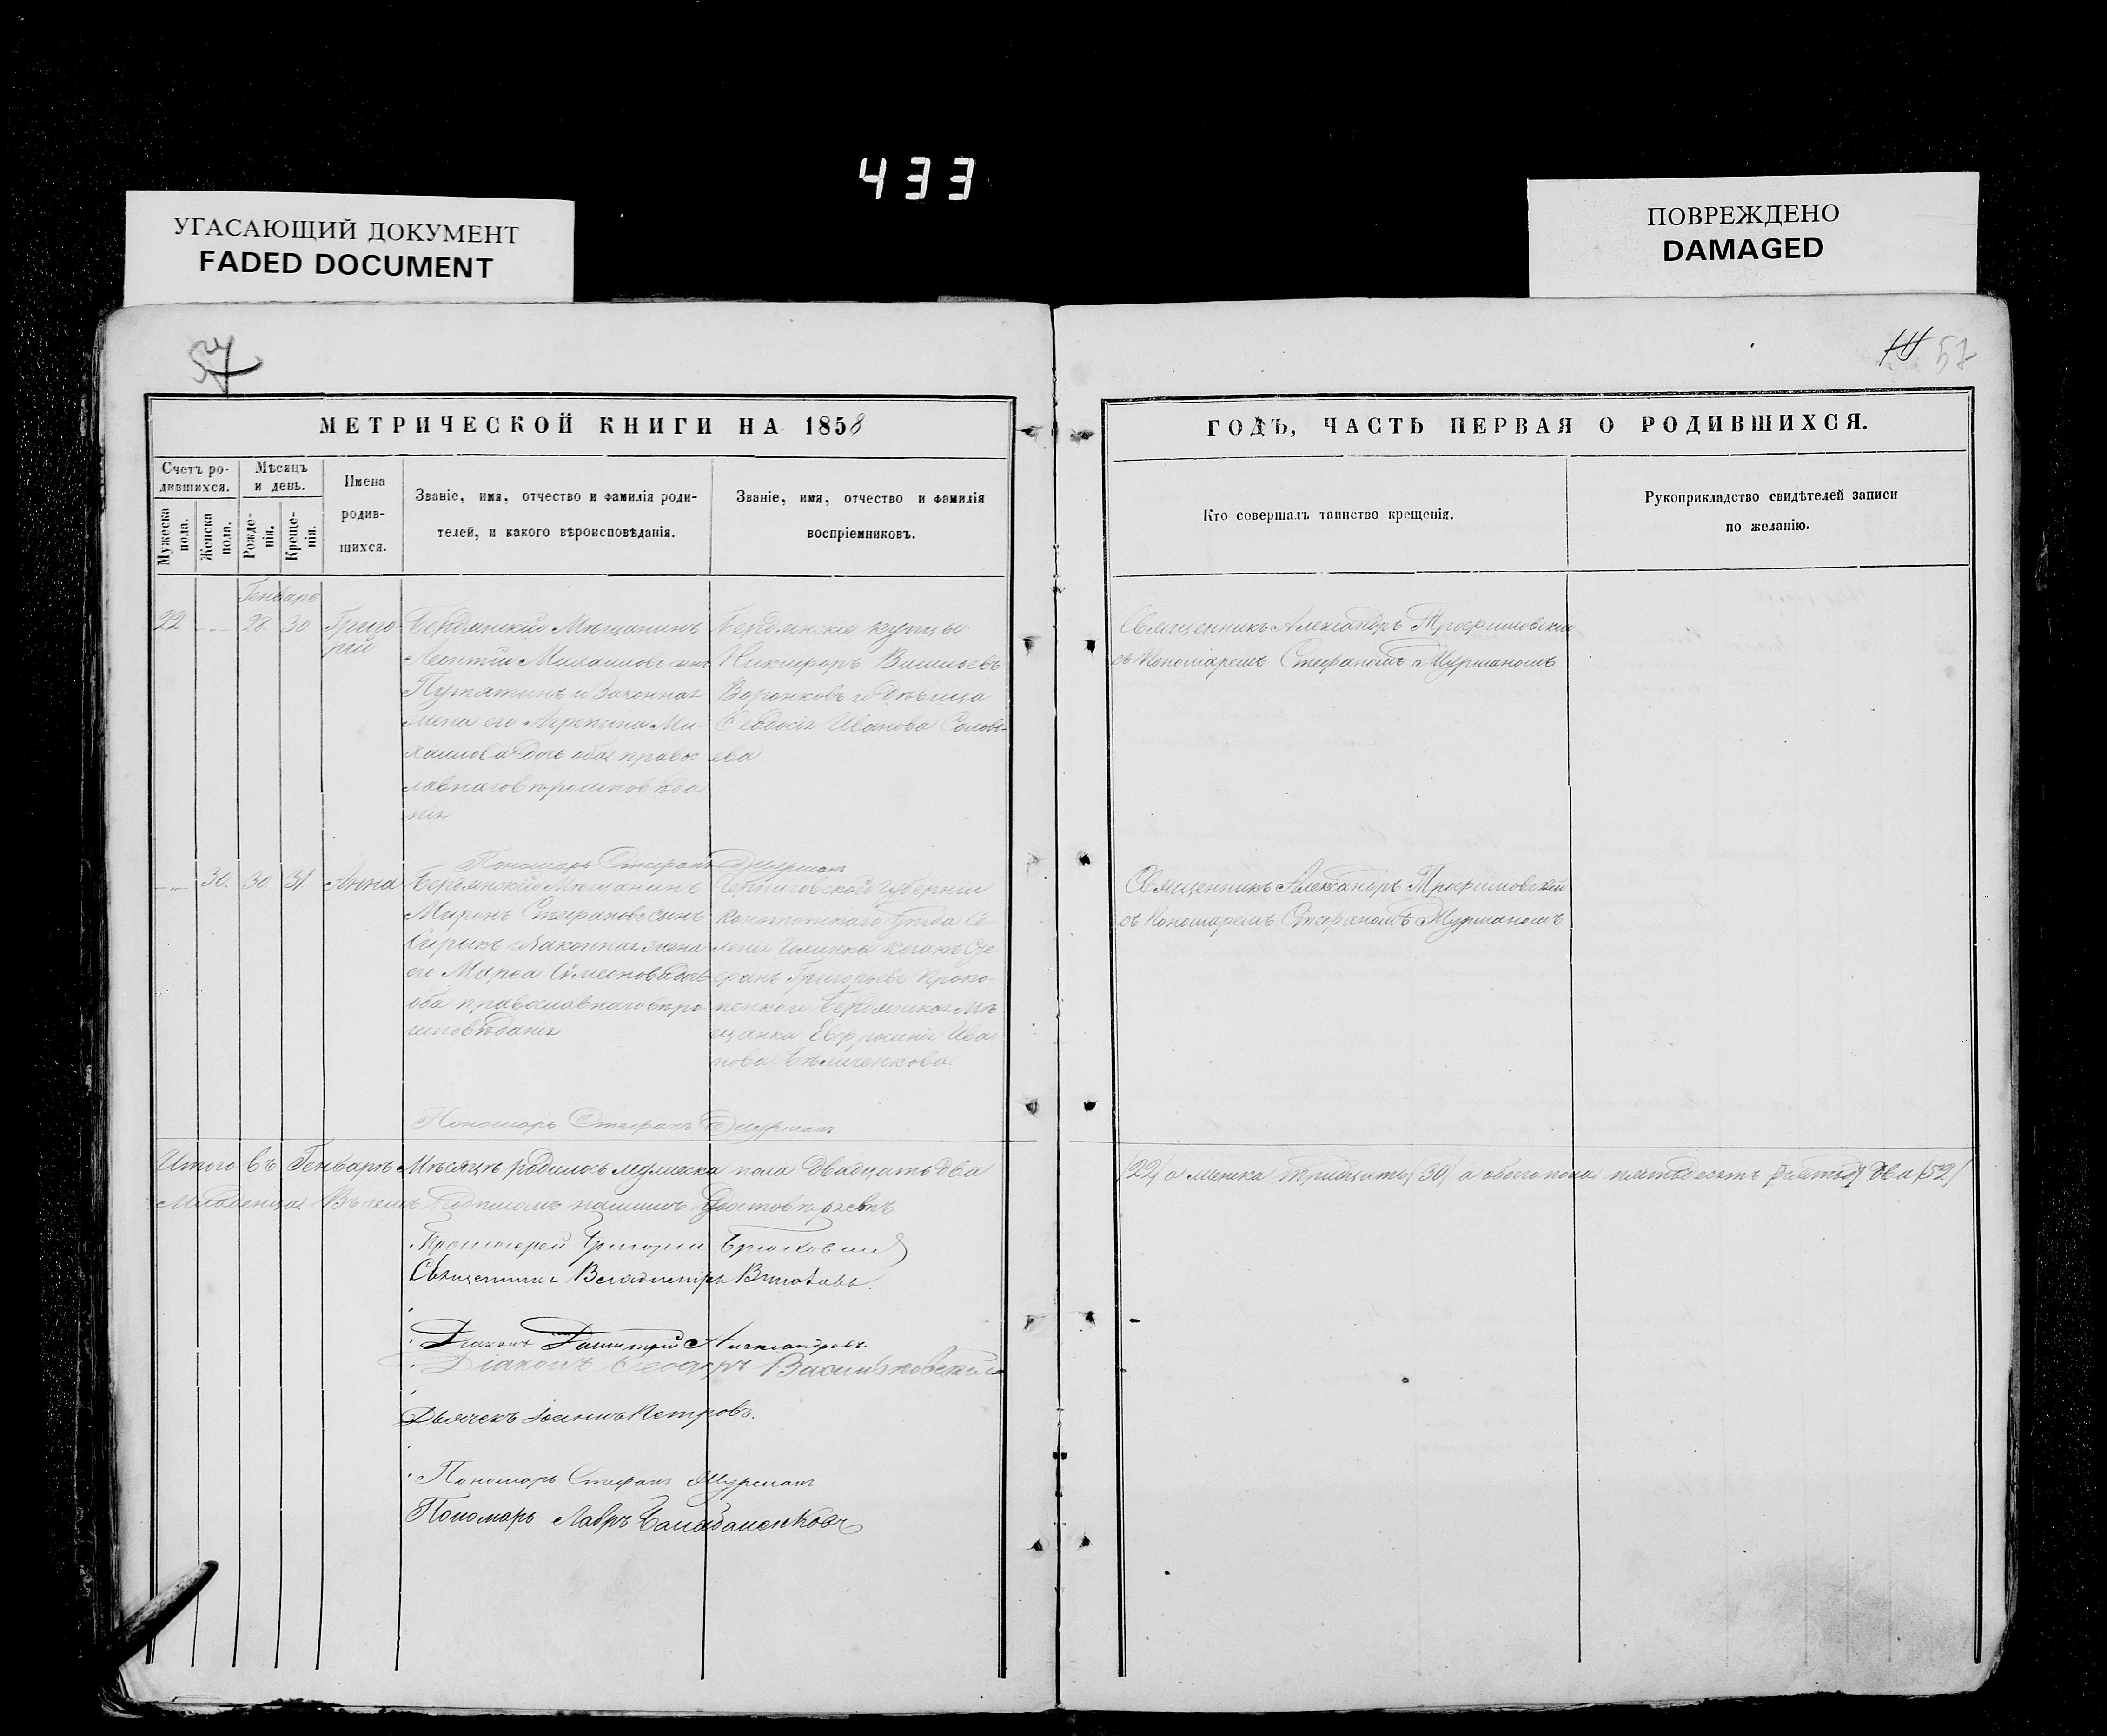 433
УГАСАЮЩИЙ ДОКУМЕНТ
FADED DOCUMENT
ПОВРЕЖДЕНО
DAMAGED
57
МЕТРИЧЕСКОЙ КНИГИ НА 1858
Счетъ ро-
дившихся.
Мужеска
пола.
Женска
пола.
Мѣсяцъ
и день.
Рожде-
нія.
Креще-
нія.
Имена
родив-
шихся.
Званіе, имя, отчество и фамилія роди-
телей, и какого вѣроисповѣданія.
Званіе, имя, отчество и фамилія
воспріемниковъ.
Генварь
22
28
30
Григо-
рій
Бердянскій Мѣщанинъ
Леонтій Михаиловъ сынъ
Путятинъ и Законная
жена его Агрепина Ми-
хаилова дочь оба правос
лавнаго вѣроисповѣда
нія
Бердянскіе купцы
Никифоръ Васильевъ
Воронковъ и дѣвица
Феодосія Иванова Соловь-
ева
Пономарь Стефанъ Мурманъ
30.
30
31
Анна
Бердянскій Мѣщанинъ
Миронъ Стефановъ сынъ
и Законная жена
его Марфа Симеонова дочь
оба православнаго вѣро
исповѣданія
Черниговской губерніи
Конотопскаго уѣзда Се
ленія Голинки козакъ Сте-
фанъ Григорьевъ Проко
пенко и Бердянская Мѣ
щанка Евфросинія Ива
нова
Пономарь Стефанъ Мурманъ
Итого въ Генварѣ Мѣсяцѣ родилось мужеска пола двадцать два
Младенца Въ чемъ Подписомъ нашимъ
Протоіерей Григорій
Священникъ Владимиръ
Діаконъ Димитрій Александровъ.
Діаконъ Феодоръ Васильковскій
Дьячекъ Іоаннъ Петровъ.
Пономарь Стефанъ Мурманъ
Пономарь Лавръ
57
ГОДЪ, ЧАСТЬ ПЕРВАЯ О РОДИВШИХСЯ.
Кто совершалъ таинство крещенія.
Рукоприкладство свидѣтелей записи
по желанію.
Священникъ Александръ Трофимовскій
съ Пономаремъ Стефаномъ Мурманомъ
Священникъ Александръ Трофимовскій
съ Пономаремъ Стефаномъ Мурманомъ
/22/ а женска тридцать /30/ а обоего пола пятьдесятъ два /52/